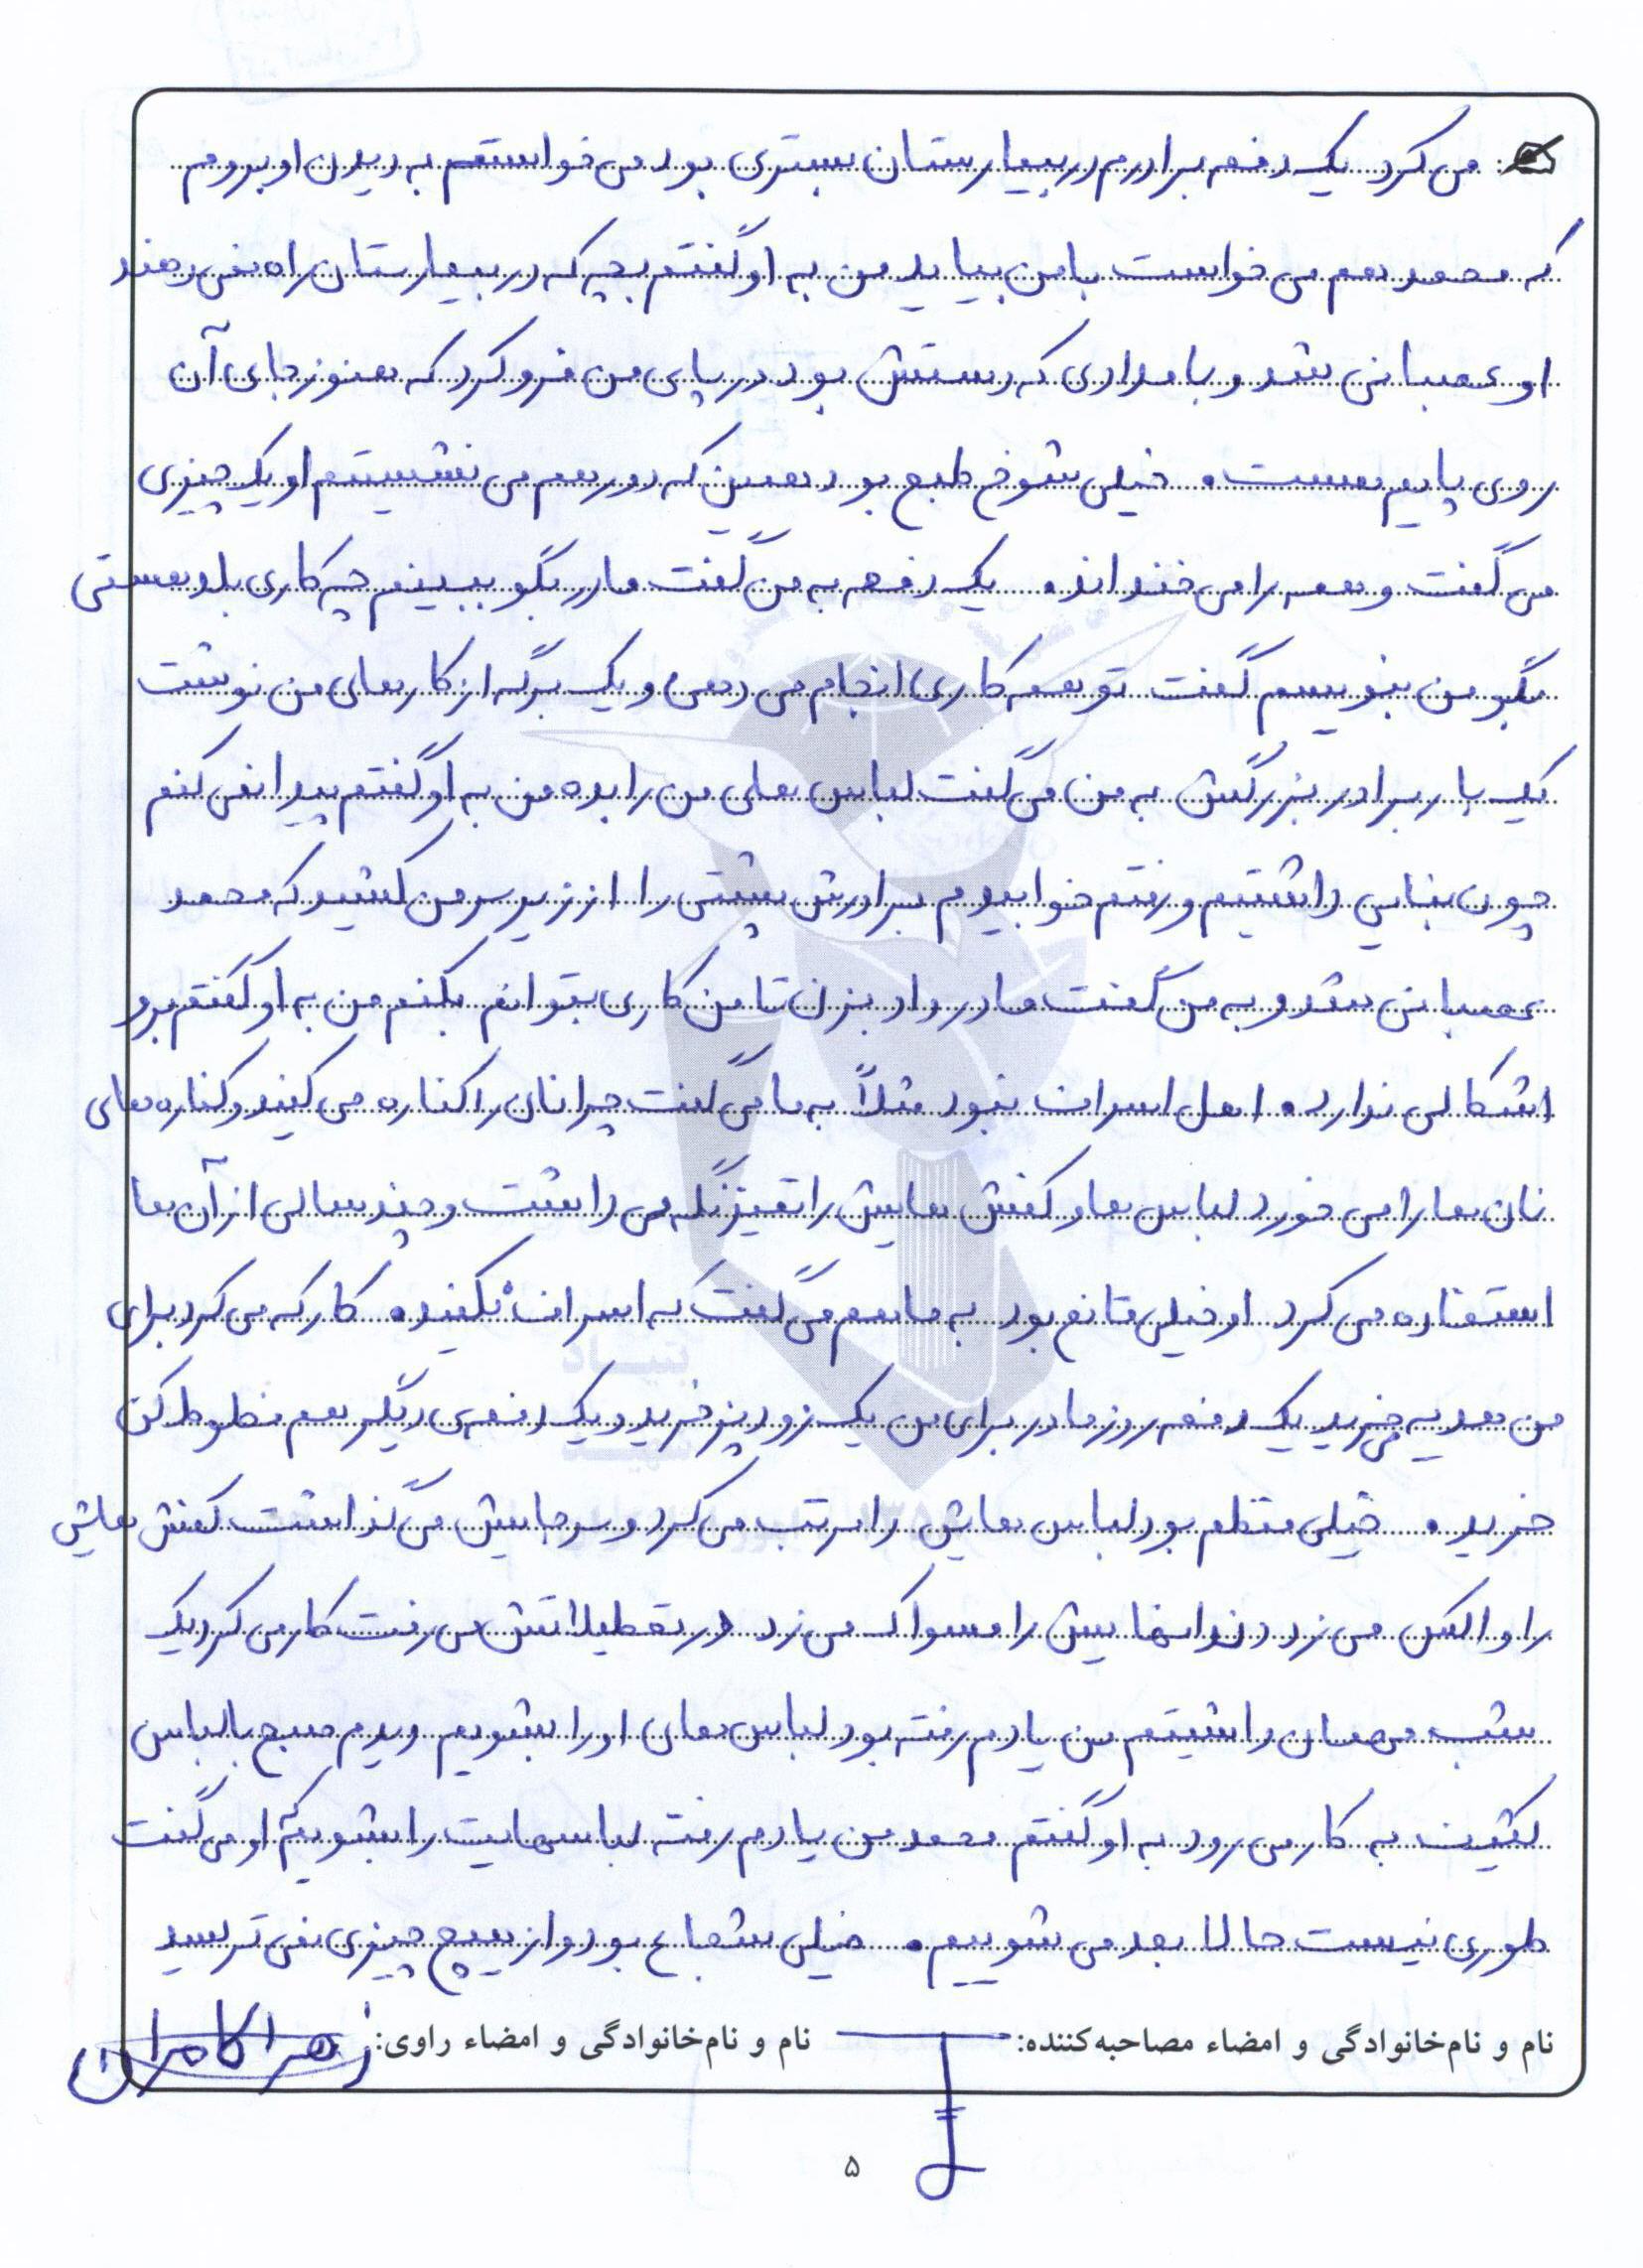 می کرد یک دفعه برادرم در بیمارستان بستری بود می خواستم به دیدن او بروم
که محمد هم می خواست با من بیاید من به او گفتم بچه که در بیمارستان راه نمی دهند
او عصبانی شد و با مدادی که دستش بود در پای من فرو کرد که هنوز جای آن
روی پایم هست. خیلی شوخ طبع بود همین که دور هم می نشیستم او یک چیزی
می گفت و همه را می خنداند. یک دفعه به من گفت مادر بگو ببینم چه کاری بلد هستی
بگو من بنویسم گفت تو همه کاری انجام می دهی و یک برگه از کارهای من نوشت
یک بار برادر بزرگش به من می گفت لباس های من را بده من به او گفتم پیدا نمی کنم
چون بنایی داشتیم و رفتم خوابیدم برادرش پشتی را از زیر سر من کشید که محمد
عصبانی شد و به من گفت مادر داد بزن تا من کاری بتوانم بکنم من به او گفتم برو
اشکالی ندارد. اهل اسراف نبود مثلاً به ما می گفت چرا نان را کناره می کنید و کناره های
نان ها را می خورد لباس ها و کفش هایش را تمیز نگه می داشت و چند سالی از آن ها
استفاده می کرد او خیلی قانع بود به ما هم می گفت که اسراف نکنید. کار که می کرد برای
من هدیه می خرید یک دفعه روز مادر برای من یک زودپز خرید و یک دفعه ی دیگر هم مخلوط کن
خرید. خیلی منظم بود لباس هایش را مرتب می کرد و سر جایش می گذاشت کفش هایش
را واکس می زد دندانهایش را مسواک می زد در تعطیلاتش می رفت کار می کرد یک
شب مهمان داشیتم من یادم رفته بود لباس های او را بشویم دیدم صبح با لباس
کثیف به کار می رود به او گفتم محمد من یادم رفته لباسهایت را بشویم او می گفت
طوری نیست حالا بعد می شوییم. خیلی شجاع بود و از هیچ چیزی نمی ترسید
نام و نام‌خانوادگی و امضاء مصاحبه‌کننده: نام و نام‌خانوادگی و امضاء راوی: زهرا کامران
۵